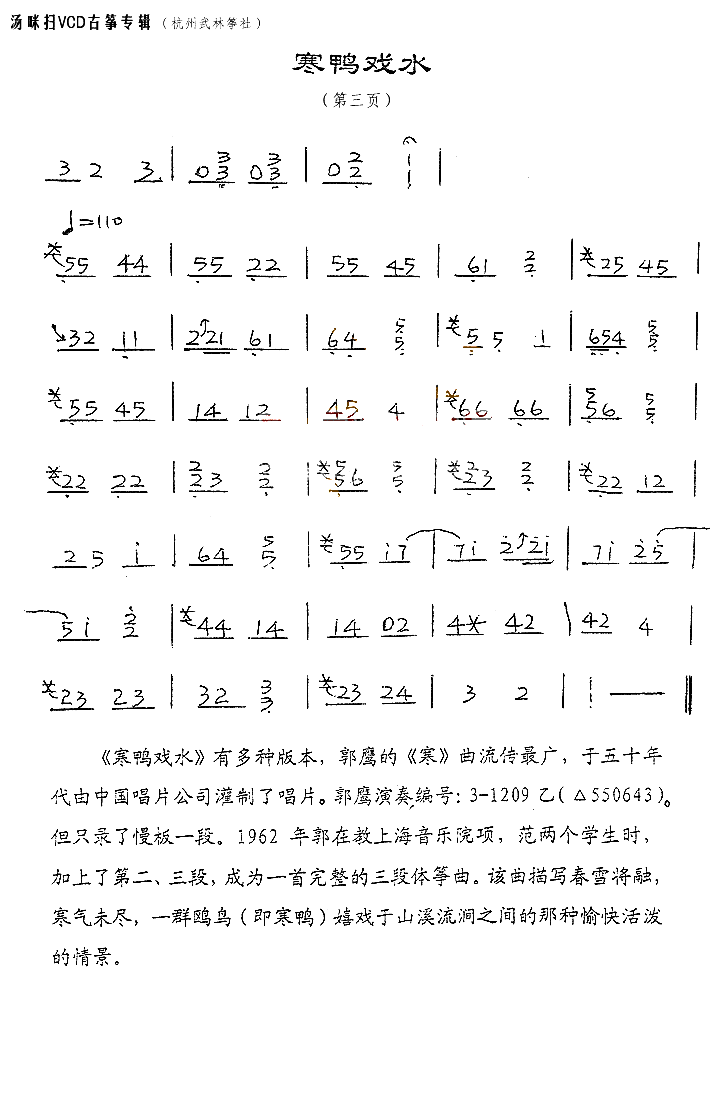 汤咪扫VCD古筝专辑 （杭州武林筝社）
寒鸭戏水
（第三页）
3 2 3 | 0 3 3 0 3 3 | 0 2 2 i |
♩=110
55 44 | 55 22 | 55 45 | 61 2 2 | 25 45 |
32 11 | 221 61 | 64 5 5 | 5 5 1 | 654 5 5 |
55 45 | 14 12 | 45 4 | 66 66 | 5 56 5 5 |
22 22 | 2 23 2 2 | 5 56 5 5 | 2 23 2 2 | 22 12 |
2 5 i | 64 5 5 | 55 i7 | 7i 2 2i | 7i 25 |
5i 2 2 | 44 14 | 14 02 | 4 42 | 42 4 |
23 23 | 32 3 3 | 23 24 | 3 2 | i — ‖
《寒鸭戏水》有多种版本，郭鹰的《寒》曲流传最广，于五十年
代由中国唱片公司灌制了唱片。郭鹰演奏编号：3-1209 乙（△550643）。
但只录了慢板一段。1962 年郭在教上海音乐院项，范两个学生时，
加上了第二、三段，成为一首完整的三段体筝曲。该曲描写春雪将融，
寒气未尽，一群鸥鸟（即寒鸭）嬉戏于山溪流涧之间的那种愉快活泼
的情景。